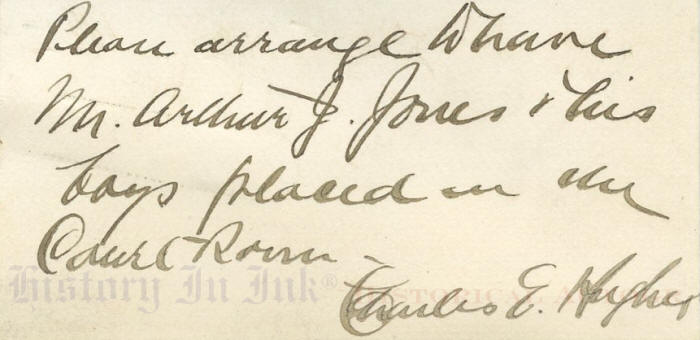 Please arrange to have
Mr. Arthur J. Jones & his
boys placed in the
Court Room -
Charles E. Hughes
History In Ink®
HISTORICAL